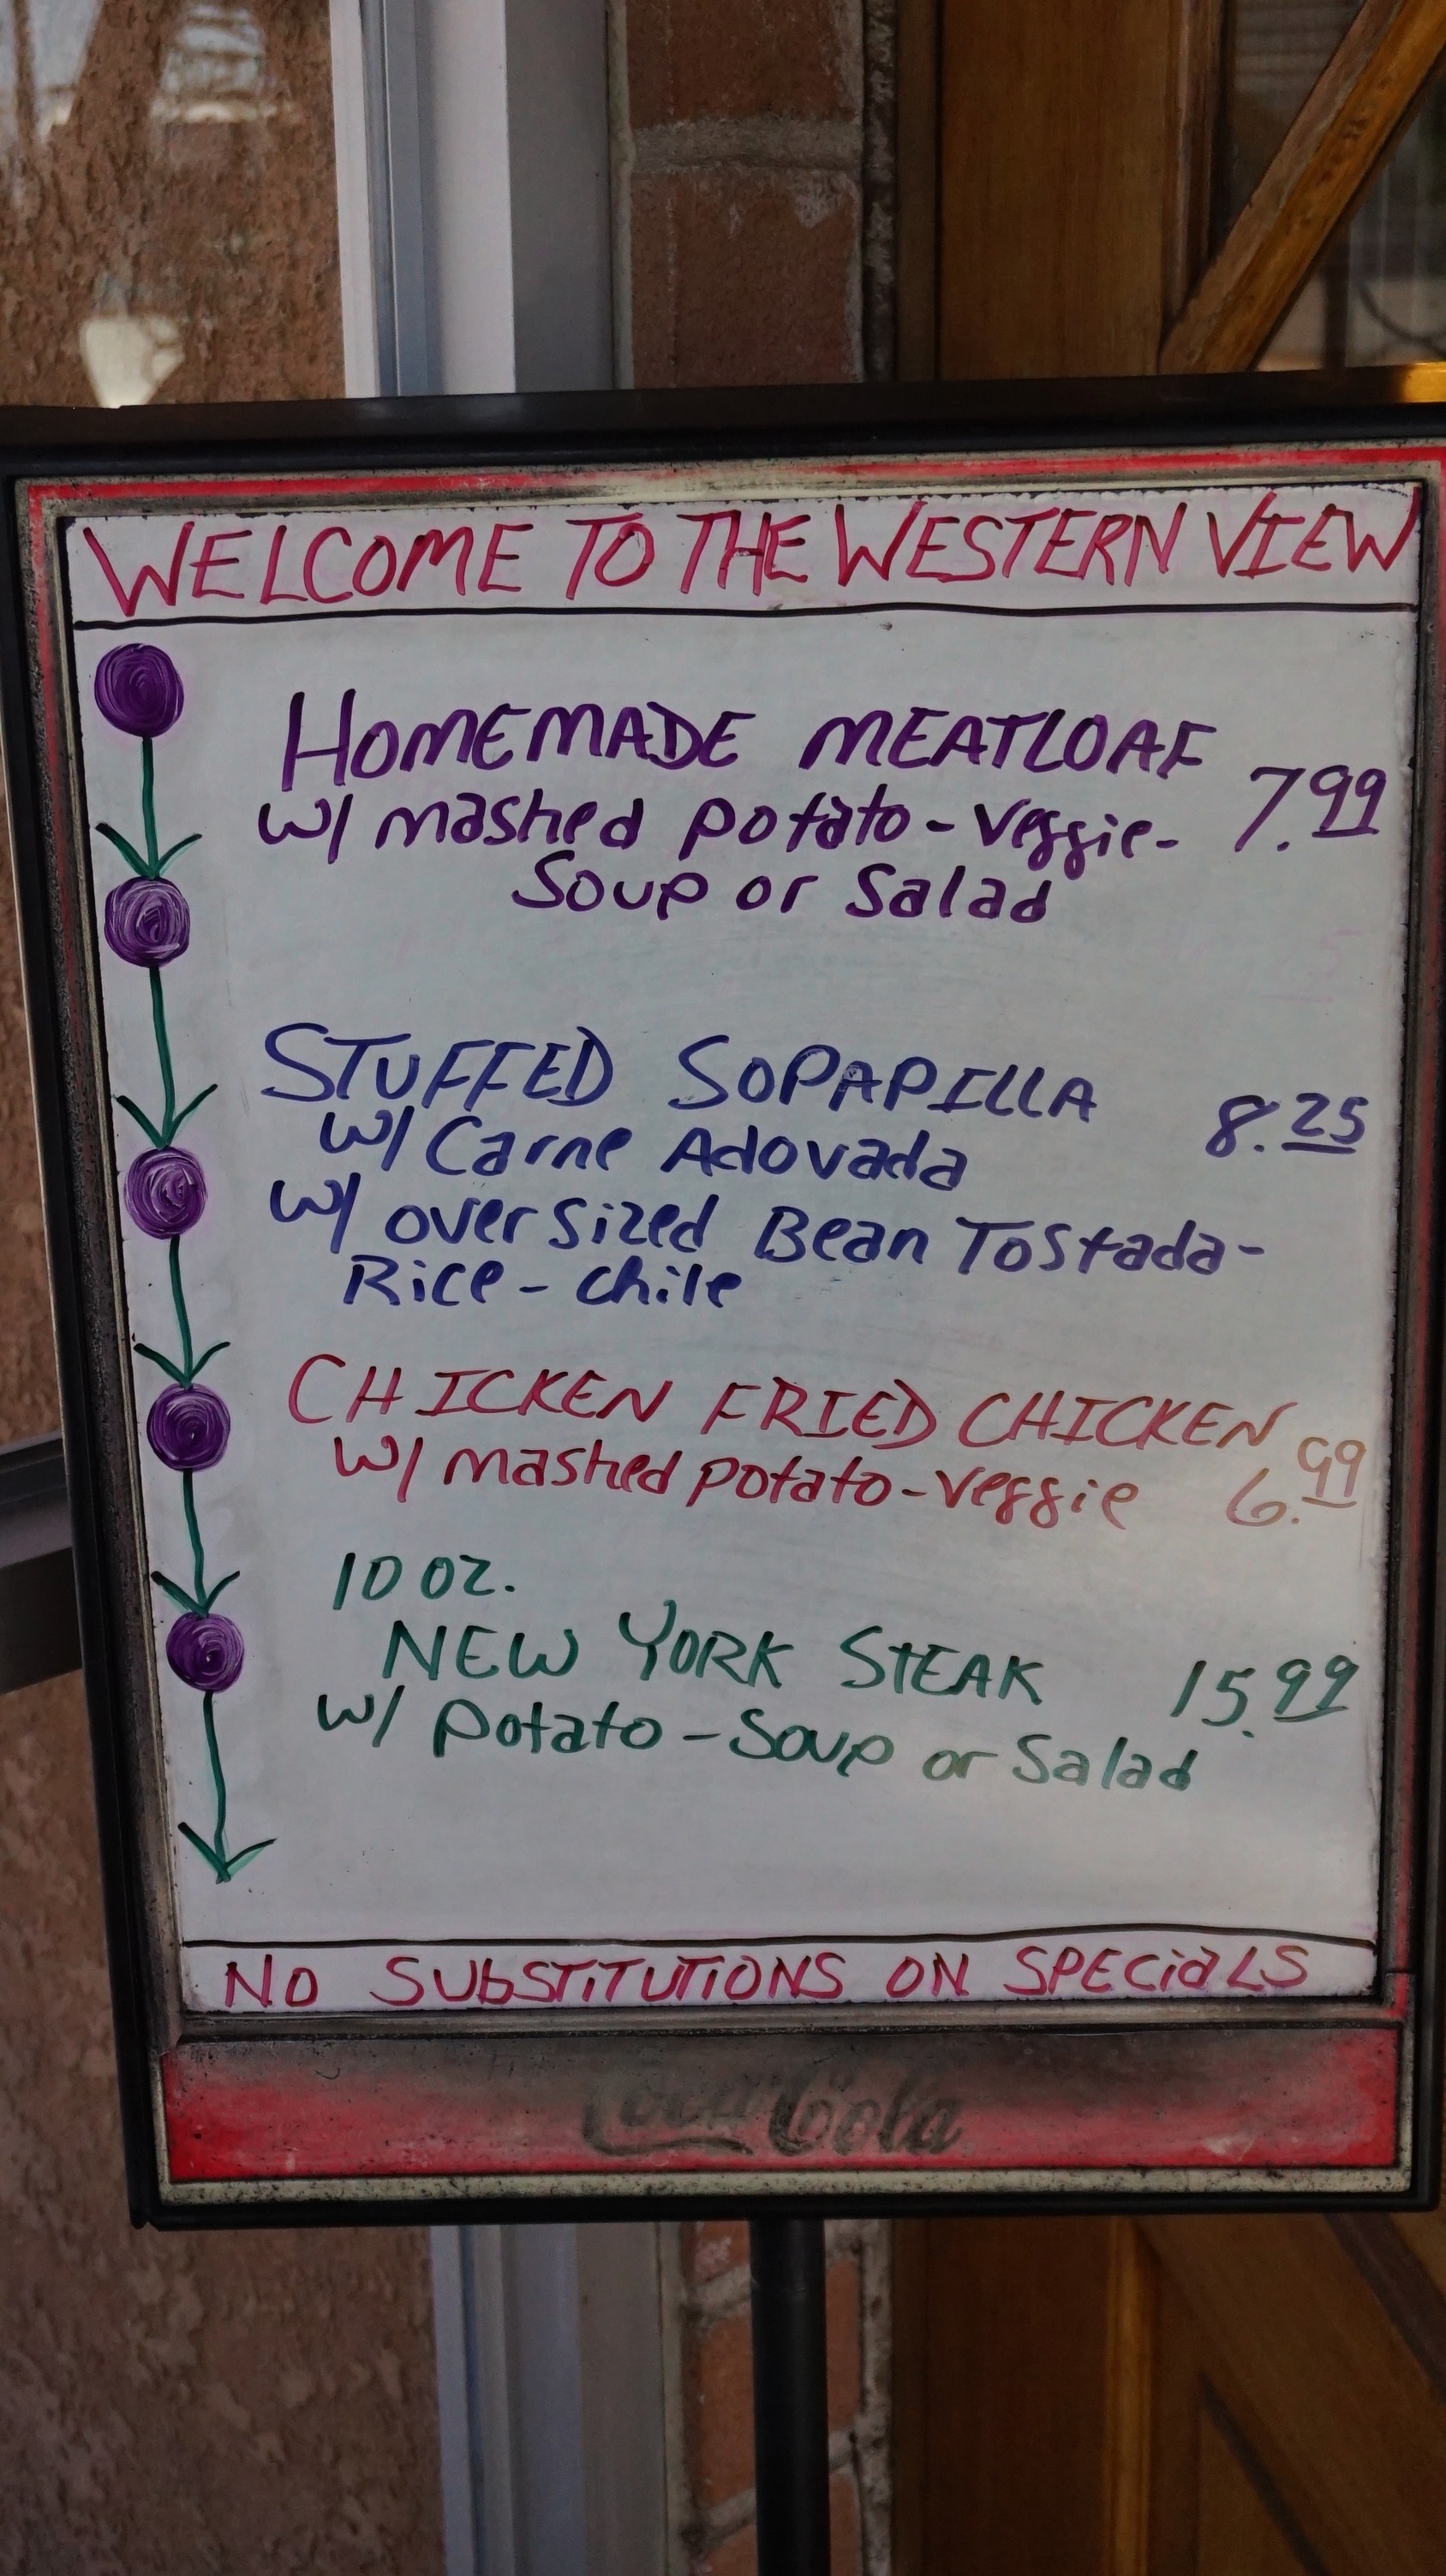 WELCOME TO THE WESTERN VIEW
HOMEMADE MEATLOAF
w/ mashed potato - veggie - 7.99
Soup or Salad
STUFFED SOPAPILLA 8.25
w/ Carne Adovada
w/ oversized Bean Tostada -
Rice - chile
CHICKEN FRIED CHICKEN
w/ mashed potato - veggie 6.99
10 oz.
NEW YORK STEAK 15.99
w/ potato - Soup or Salad
NO SUBSTITUTIONS ON SPECiaLS
Coca-Cola